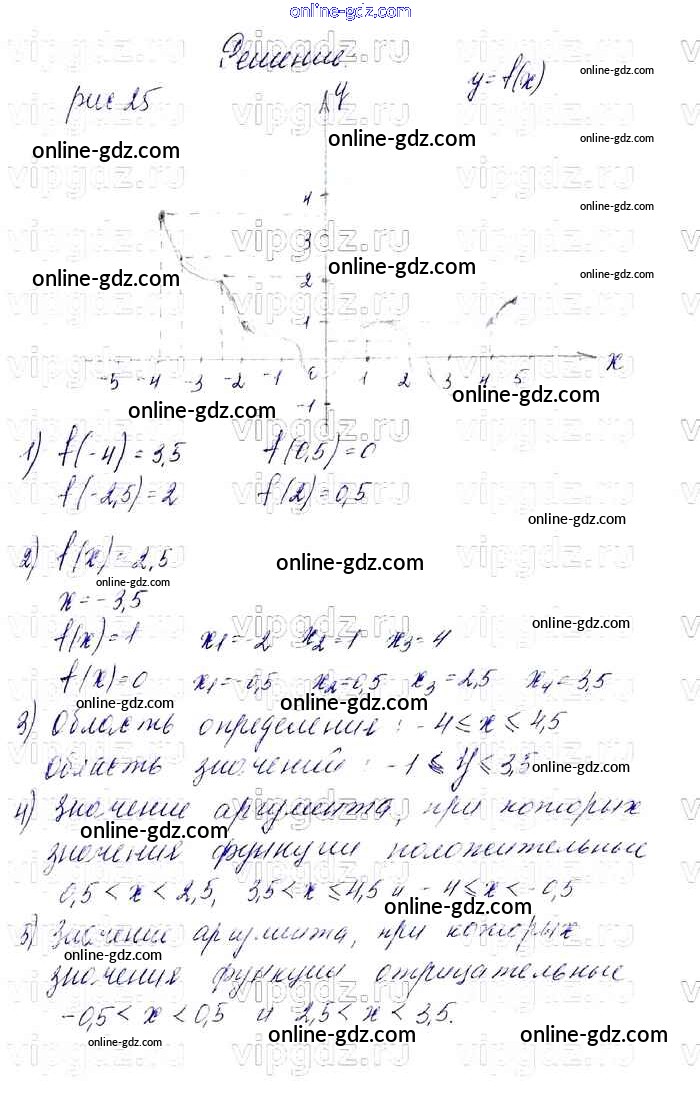 online-gdz.com
Решение.
рис 25
y
y=f(x)
online-gdz.com
online-gdz.com
online-gdz.com
4
online-gdz.com
3
online-gdz.com
online-gdz.com
online-gdz.com
2
1
-5 -4 -3 -2 -1 1 2 3 4 5 x
-1
online-gdz.com
online-gdz.com
1) f(-4)=3,5 f(0,5)=0
f(-2,5)=2 f(2)=0,5
online-gdz.com
2) f(x)=2,5
online-gdz.com
online-gdz.com
x=-3,5
online-gdz.com
f(x)=1 x1=-2 x2=1 x3=4
f(x)=0 x1=-0,5 x2=0,5 x3=2,5 x4=3,5
online-gdz.com
online-gdz.com
3) Область определения: -4≤x≤4,5
область значений: -1≤y≤3,5
online-gdz.com
4) Значение аргумента, при которых
online-gdz.com
значения функции положительные
0,5<x<2,5, 3,5<x≤4,5 и -4≤x<-0,5
online-gdz.com
5) Значение аргумента, при которых
online-gdz.com
значения функции отрицательные
-0,5<x<0,5 и 2,5<x<3,5.
online-gdz.com
online-gdz.com
online-gdz.com